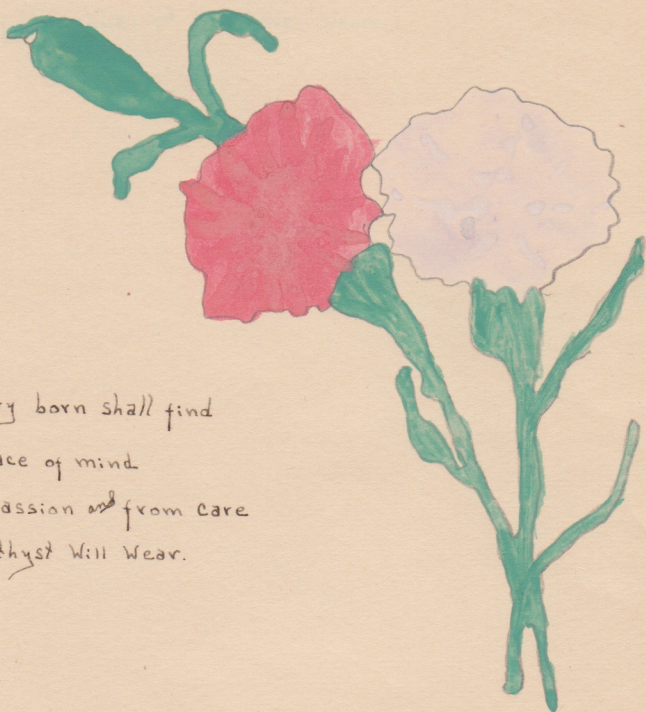 ry born shall find
ace of mind
assion and from care
thyst Will Wear.